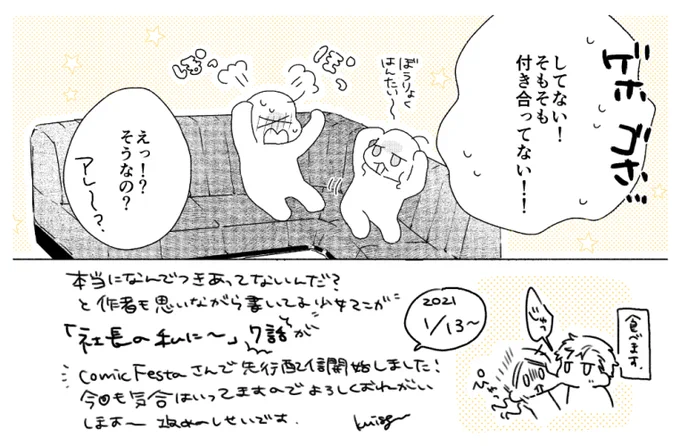 ゲホ
ゴホッ
してない!
そもそも
付き合ってない!!
ぼうりょく
はんたい〜
ぽい
ぽい
えっ!?
そうなの?
アレ〜?
本当になんでつきあってないんだ?
と作者も思いながら書いてる少女マンガ
「社長の私に〜」7話が
ComicFestaさんで先行配信開始しました!
今回も気合はいってますのでよろしくおねがい
します〜
2021
1/13〜
食べます